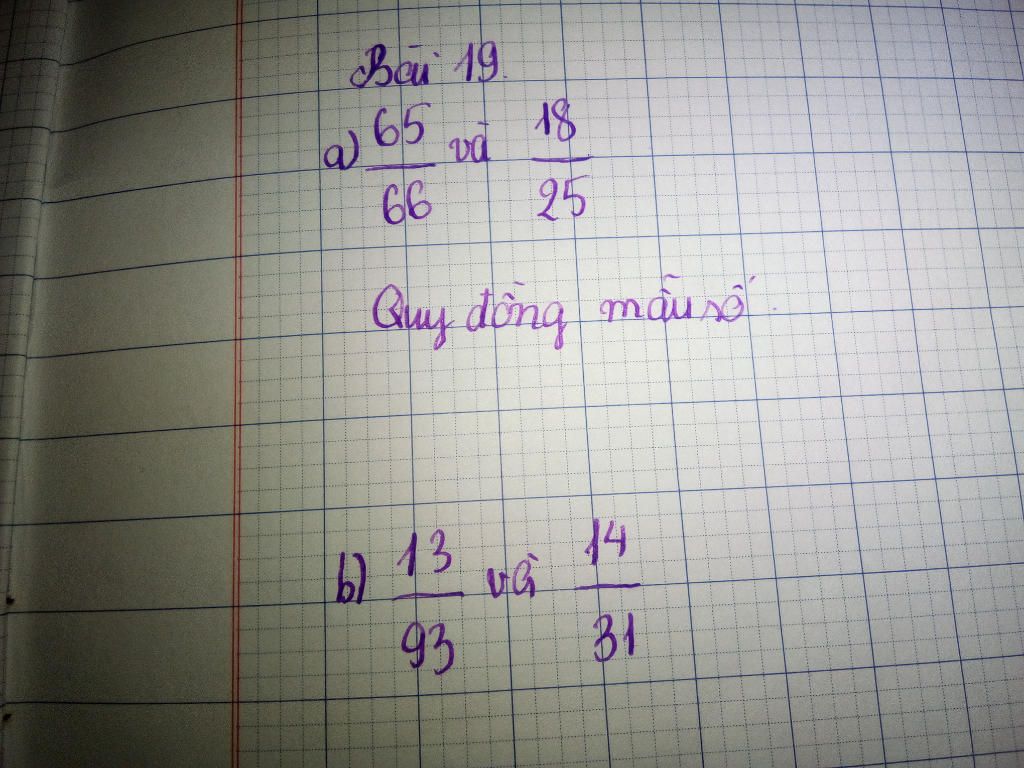 Bài 19.
a) 65/66 và 18/25
Quy đồng mẫu số.
b) 13/93 và 14/31